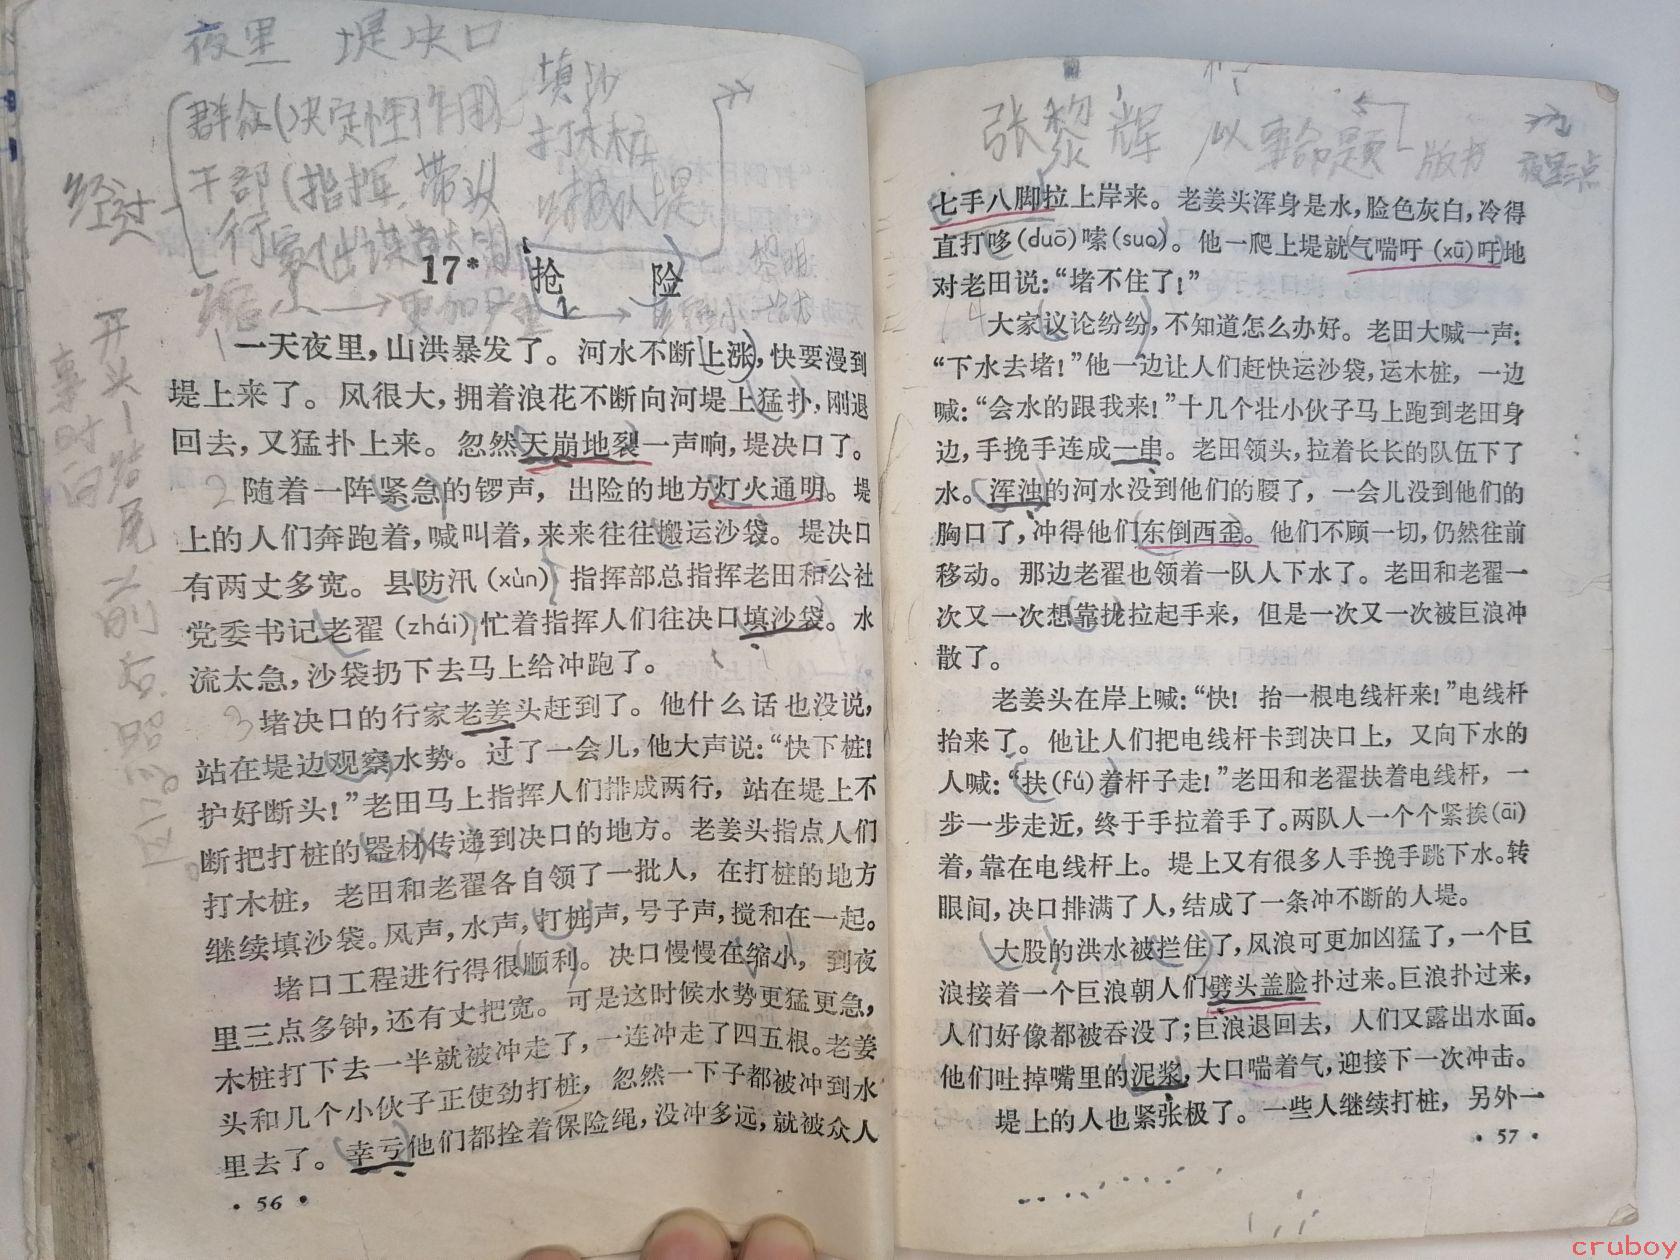 夜里 堤决口
群众(决定性作用)
干部(指挥、带头
填沙
打木桩
经过
17* 抢 险
更加严重
开头—结尾 前后照应
一天夜里，山洪暴发了。河水不断上涨，快要漫到
堤上来了。风很大，拥着浪花不断向河堤上猛扑，刚退
回去，又猛扑上来。忽然天崩地裂一声响，堤决口了。
2 随着一阵紧急的锣声，出险的地方灯火通明。堤
上的人们奔跑着，喊叫着，来来往往搬运沙袋。堤决口
有两丈多宽。县防汛(xùn)指挥部总指挥老田和公社
党委书记老翟(zhái)忙着指挥人们往决口填沙袋。水
流太急，沙袋扔下去马上给冲跑了。
3 堵决口的行家老姜头赶到了。他什么话也没说，
站在堤边观察水势。过了一会儿，他大声说：“快下桩！
护好断头！”老田马上指挥人们排成两行，站在堤上不
断把打桩的器材传递到决口的地方。老姜头指点人们
打木桩，老田和老翟各自领了一批人，在打桩的地方
继续填沙袋。风声，水声，打桩声，号子声，搅和在一起。
堵口工程进行得很顺利。决口慢慢在缩小，到夜
里三点多钟，还有丈把宽。可是这时候水势更猛更急，
木桩打下去一半就被冲走了，一连冲走了四五根。老姜
头和几个小伙子正使劲打桩，忽然一下子都被冲到水
里去了。幸亏他们都拴着保险绳，没冲多远，就被众人
·56·
张黎辉 以事命题 板书
夜里三点
七手八脚拉上岸来。老姜头浑身是水，脸色灰白，冷得
直打哆(duō)嗦(suo)。他一爬上堤就气喘吁(xū)吁地
对老田说：“堵不住了！”
4 大家议论纷纷，不知道怎么办好。老田大喊一声：
“下水去堵！”他一边让人们赶快运沙袋，运木桩，一边
喊：“会水的跟我来！”十几个壮小伙子马上跑到老田身
边，手挽手连成一串。老田领头，拉着长长的队伍下了
水。浑浊的河水没到他们的腰了，一会儿没到他们的
胸口了，冲得他们东倒西歪。他们不顾一切，仍然往前
移动。那边老翟也领着一队人下水了。老田和老翟一
次又一次想靠拢拉起手来，但是一次又一次被巨浪冲
散了。
老姜头在岸上喊：“快！抬一根电线杆来！”电线杆
抬来了。他让人们把电线杆卡到决口上，又向下水的
人喊：“扶(fú)着杆子走！”老田和老翟扶着电线杆，一
步一步走近，终于手拉着手了。两队人一个个紧挨(āi)
着，靠在电线杆上。堤上又有很多人手挽手跳下水。转
眼间，决口排满了人，结成了一条冲不断的人堤。
大股的洪水被拦住了，风浪可更加凶猛了，一个巨
浪接着一个巨浪朝人们劈头盖脸扑过来。巨浪扑过来，
人们好像都被吞没了；巨浪退回去，人们又露出水面。
他们吐掉嘴里的泥浆，大口喘着气，迎接下一次冲击。
堤上的人也紧张极了。一些人继续打桩，另外一
·57·
cruboy